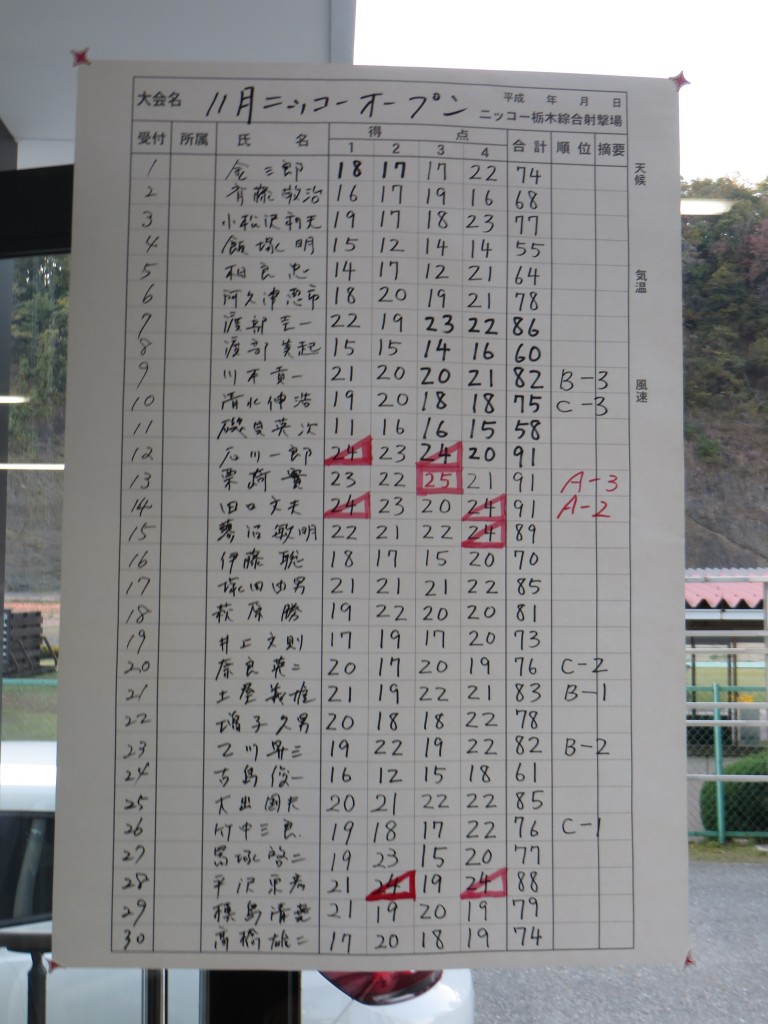 大会名 11月ニッコーオープン 平成 年 月 日
ニッコー栃木綜合射撃場
受付 所属 氏名 得点 合計 順位 摘要
1 2 3 4
天候
気温
風速
1 金三郎 18 17 17 22 74
2 斉藤敬治 16 17 19 16 68
3 小松沢初夫 19 17 18 23 77
4 飯塚明 15 12 14 14 55
5 相良忠 14 17 12 21 64
6 阿久津恵市 18 20 19 21 78
7 渡部圭一 22 19 23 22 86
8 渡部美起 15 15 14 16 60
9 川本貢一 21 20 20 21 82 B-3
10 清水伸浩 19 20 18 18 75 C-3
11 磯貝英次 11 16 16 15 58
12 石川一郎 24 23 24 20 91
13 栗崎實 23 22 25 21 91 A-3
14 田口文夫 24 23 20 24 91 A-2
15 沼敏明 22 21 22 24 89
16 伊藤聡 18 17 15 20 70
17 塚田由男 21 21 21 22 85
18 萩原勝 19 22 20 20 81
19 井上文則 17 19 17 20 73
20 奈良英二 20 17 20 19 76 C-2
21 土屋義雄 21 19 22 21 83 B-1
22 増子久男 20 18 18 22 78
23 乙川昇三 19 22 19 22 82 B-2
24 古島俊一 16 12 15 18 61
25 大出國夫 20 21 22 22 85
26 竹中三良 19 18 17 22 76 C-1
27 馬塚啓二 19 23 15 20 77
28 平沢 21 24 19 24 88
29 島清 21 19 20 19 79
30 高橋雄二 17 20 18 19 74